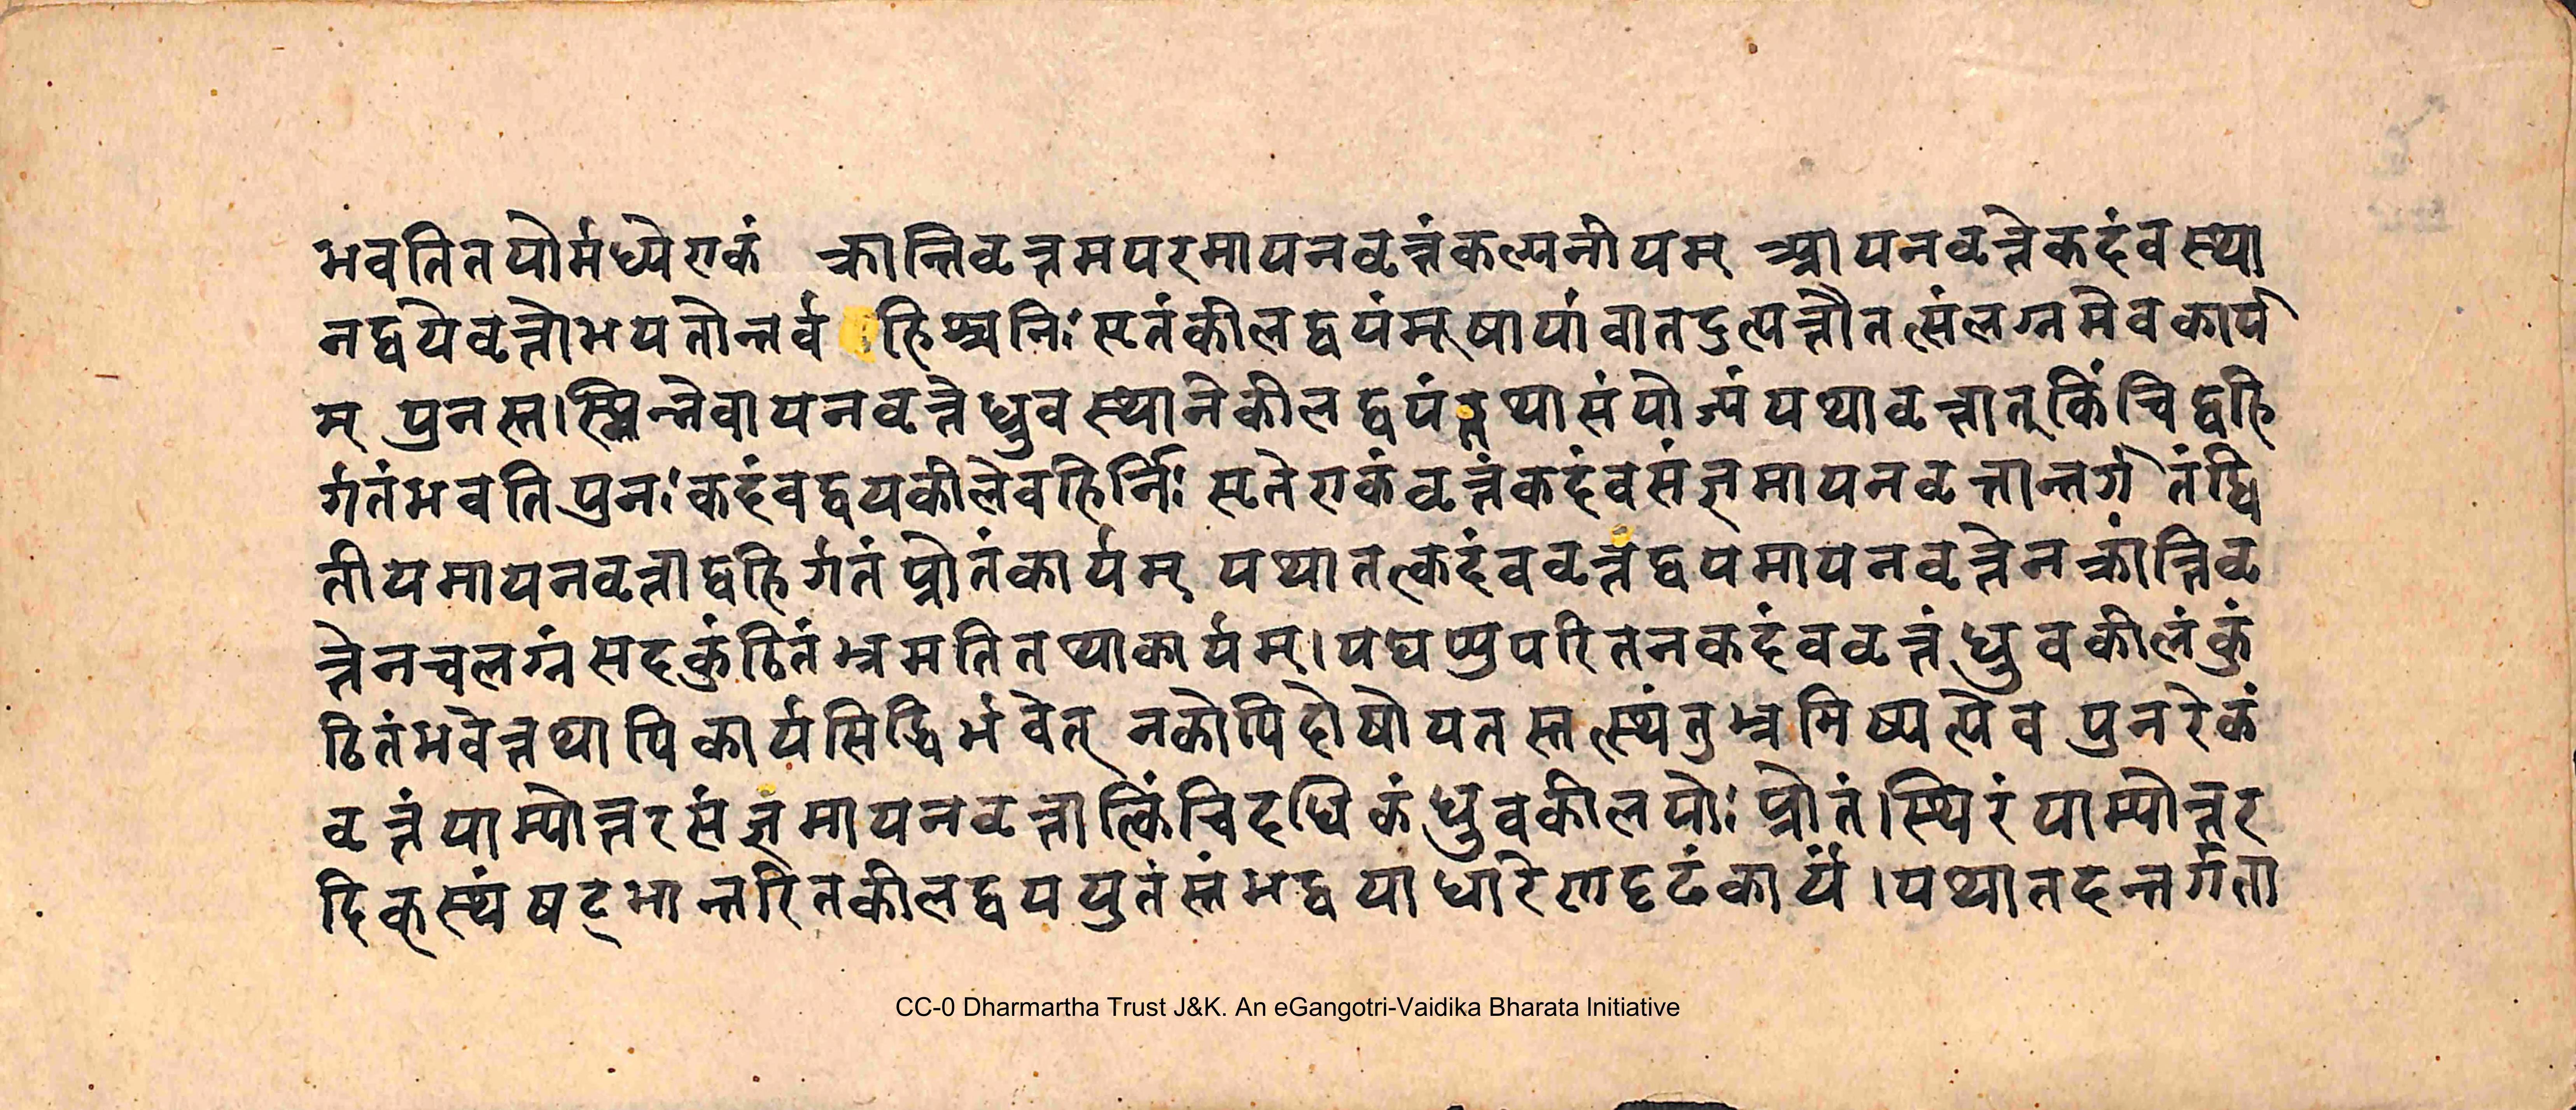 भवतितयोर्मध्येएकं क्रान्तिवृत्तमपरमायनवृत्तंकल्पनीयम् आयनवृत्तेकदंवस्था
नद्वयेवृत्तोभयतोन्तर्व हिश्चनिःसृतंकीलद्वयंमूषायांवातदुत्पन्नौतत्संलग्नमेवकार्य
म् पुनस्त।स्मिन्नेवायनवृत्तेध्रुवस्थानेकीलद्वयंतथासंयोज्यंयथावृत्तात्किंचिद्बहि
र्गतंभवतिपुनःकदंवद्वयकीलेवहिर्निःसृतेएकंवृत्तंकदंवसंज्ञमायनवृत्तान्तर्गतंद्वि
तीयमायनवृत्ताद्बहिर्गतंप्रोतंकार्यम् यथातत्कदंववृत्तद्वयमायनवृत्तेनक्रांतिवृ
त्तेनचलग्नंसदकुंठितंभ्रमतितथाकार्यम्।यद्यप्युपरितनकदंववृत्तंध्रुवकीलंकुं
ठितंभवेत्तथापिकार्यसिद्धिर्भवेत् नकोपिदोषोयतस्तत्स्थंतुभ्रमिष्यत्येव पुनरेकं
वृत्तंयाम्योत्तरसंज्ञमायनवृत्तात्किंचिदधिकंध्रुवकीलयोःप्रोतं।स्थिरंयाम्योत्तर
दिक्स्थंषट्भान्तरितकीलद्वययुतंस्तंभद्वयाधारेणदृढंकार्यं।यथातदन्तर्गता
CC-0 Dharmartha Trust J&K. An eGangotri-Vaidika Bharata Initiative